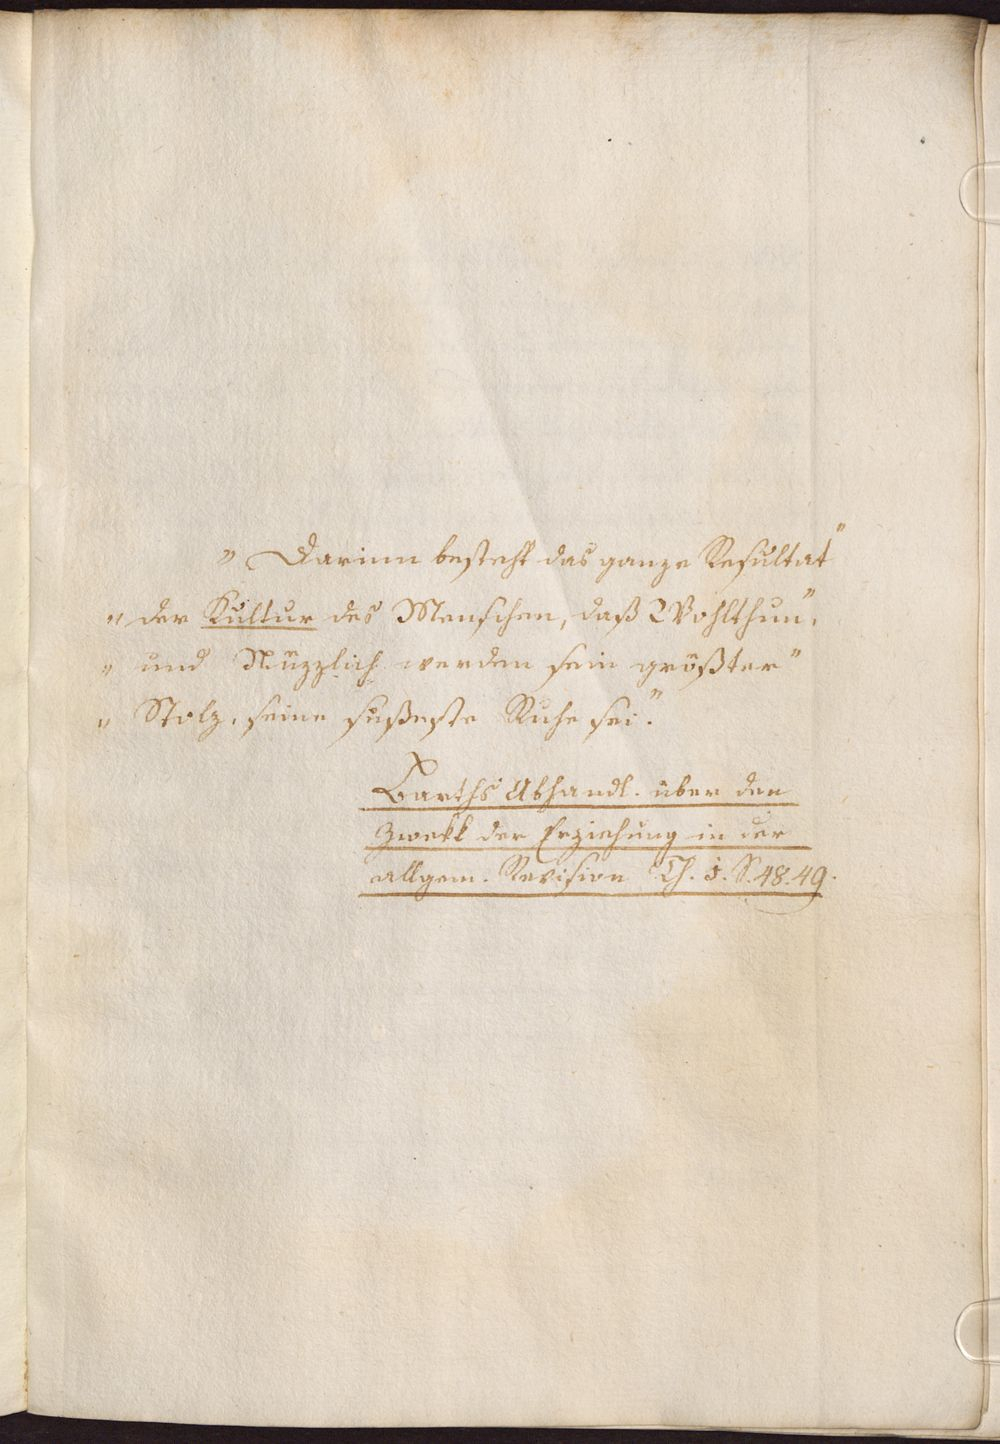 " Darinn besteht das ganze Resultat "
" der Kultur des Menschen, daß Wohlthun "
" und Nüzzlich werden sein größter "
" Stolz, seine süßeste Ruhe sei. "
Barths Abhandl. über den
Zwekk der Erziehung in der
allgem. Revision Th. 1. S. 48. 49.